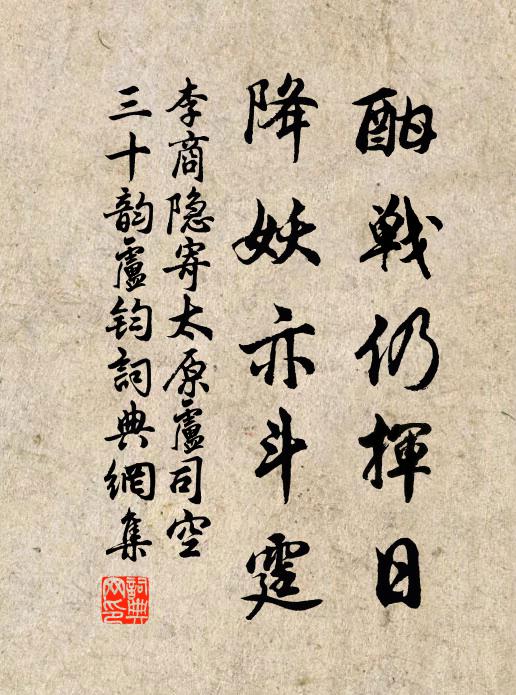 酣戰仍揮日
降妖亦斗霆
李商隐寄太原盧司空
三十韵盧鈞詞典網集
詞典
网印